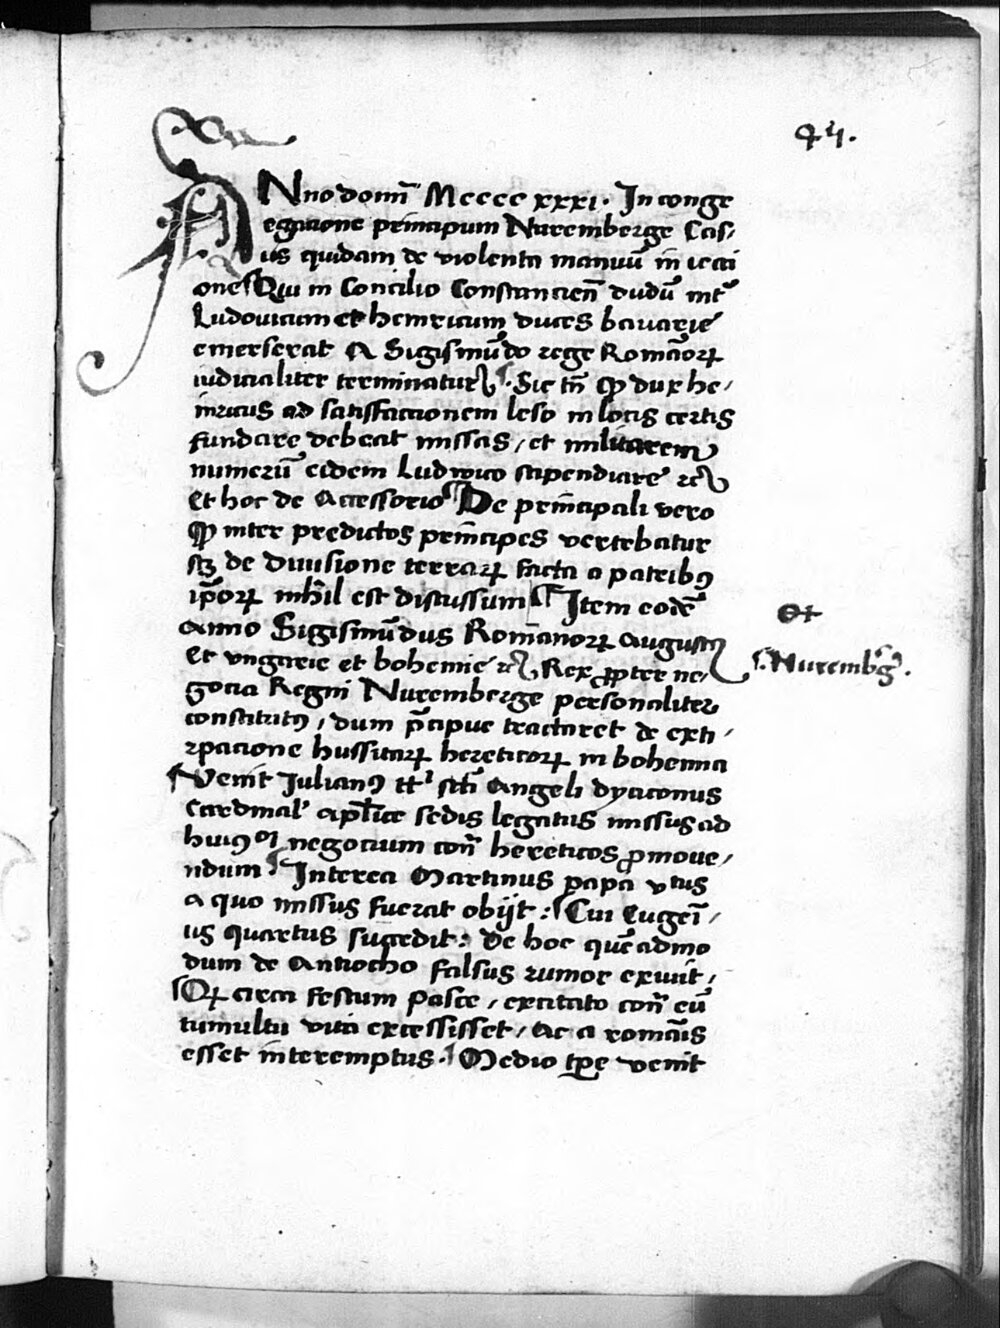 45.
ANno domī Mcccc xxxi. In conge
egacione principum Nuremberge Cas,
us quidam de violenta manuū in iecti
one Qui in Concilio Constancieñ dudū int
Ludovicum et heinricum duces bavarie
emerserat A Sigismūdo rege Romāoꝝ
iudicialiter terminatur. Sic tñ ꝙ dux he,
inricus ad satisfaccionem leso in locis certis
fundare debeat missas, et militarem
numerū eidem Ludwico stipendiare ꝛc
Et hoc de Accessorio De prīncipali vero
ꝙ inter predictos prīncipes vertebatur
scꝫ de divisione terraꝝ facta a patribꝯ
ip̄oꝝ nihil est discussum Item eodē
anno Sigismūdus Romanoꝝ Augustꝯ
Et vngarie et bohemie ꝛc Rex ꝓpter ne,
gocia Regni Nuremberge personaliter
constitutꝯ, dum p̄cipue tractaret de exti,
rpacione hussitaꝝ hereticoꝝ in bohemia
Venit Julianꝯ tt sct̄i Angeli dyaconus
Cardinal' apl̄ice sedis legatus missus ad
huiꝯōi negocium cont̄ hereticos ꝓmove,
ndum Interea Martinus papa vtus
a quo missus fuerat obijt: Cui Eugeī,
us quartus successit: De hoc quēadmo
dum de Antiocho falsus rumor exivit,
Qꝝ circa festum Pasce, excitato cont̄ eū
tumultu vita excessisset, Ac a romāis
esset interemptus. Medio tp̄e venit
et
s. Nurembḡ.